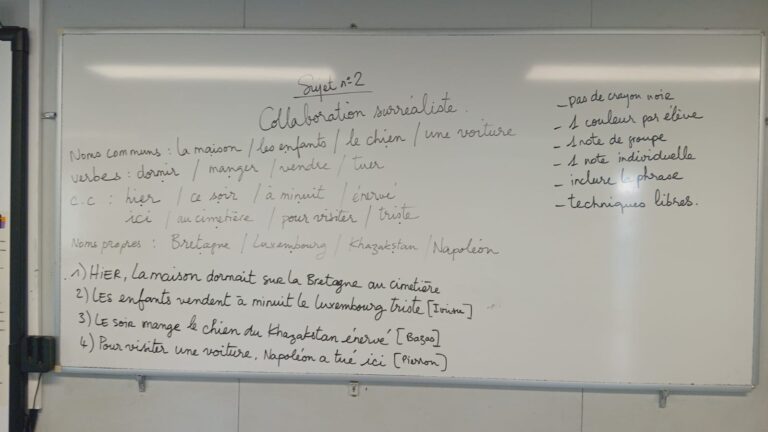 Sujet n°2
Collaboration surréaliste.
Noms communs : la maison / les enfants / le chien / une voiture
verbes : dormir / manger / vendre / tuer
c.c : hier / ce soir / à minuit / énervé
ici / au cimetière / pour visiter / triste
Noms propres : Bretagne / Luxembourg / Khazakstan / Napoléon
1) HIER, la maison dormait sur la Bretagne au cimetière
2) LES enfants vendent à minuit le Luxembourg triste
3) LE soir mange le chien du Khazakstan énervé [Bazas]
4) Pour visiter une voiture, Napoléon a tué ici [Pierron]
_ pas de crayon noir
_ 1 couleur par élève
_ 1 note de groupe
_ 1 note individuelle
_ inclure la phrase
_ techniques libres.